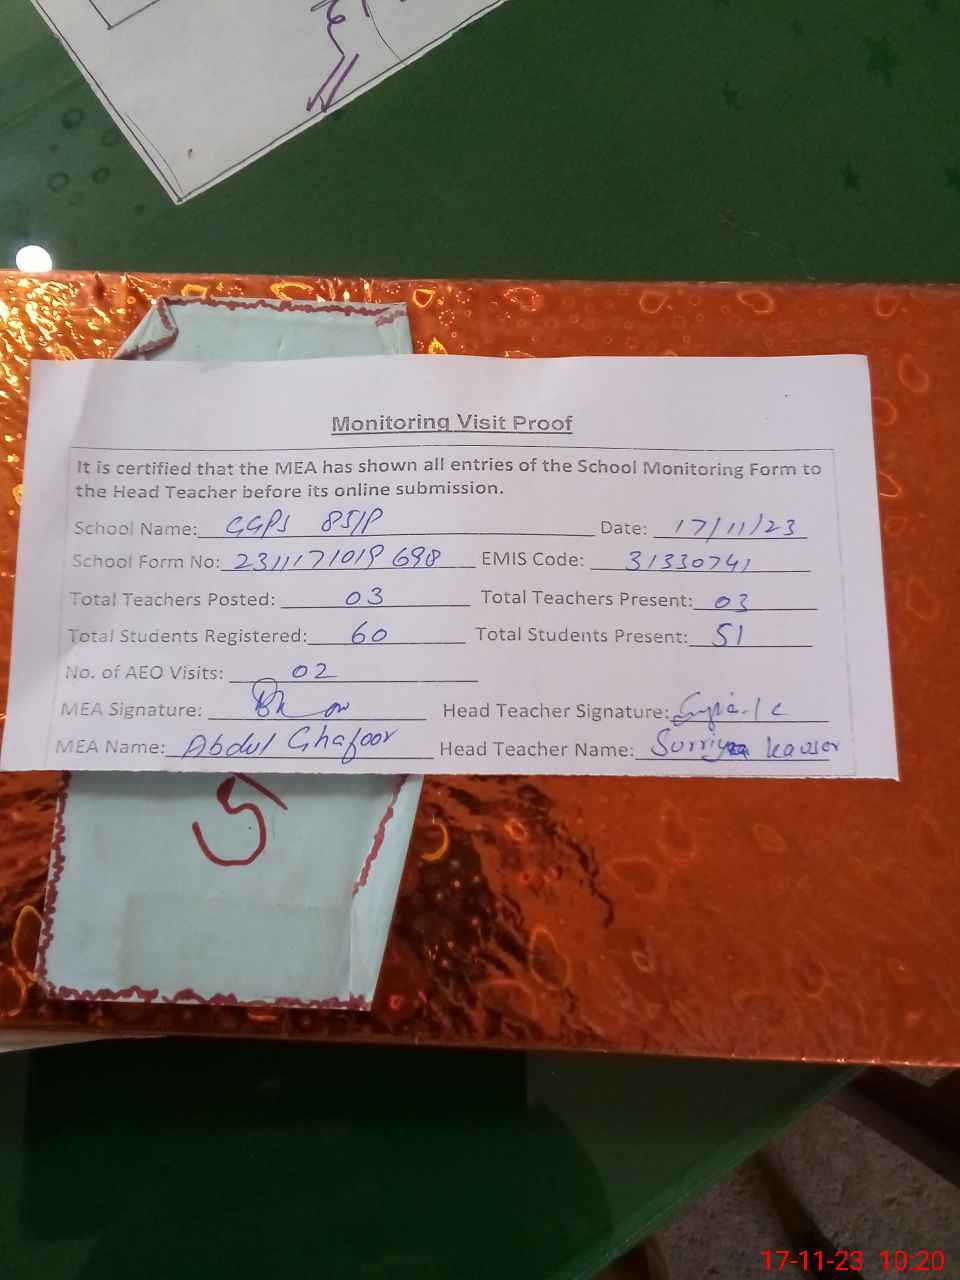 Monitoring Visit Proof
It is certified that the MEA has shown all entries of the School Monitoring Form to
the Head Teacher before its online submission.
School Name: GGPS 85/P Date: 17/11/23
School Form No: 2311171019698 EMIS Code: 31330741
Total Teachers Posted: 03 Total Teachers Present: 03
Total Students Registered: 60 Total Students Present: 51
No. of AEO Visits: 02
MEA Signature: Head Teacher Signature:
MEA Name: Abdul Ghafoor Head Teacher Name: Surriya kausar
17-11-23 10:20